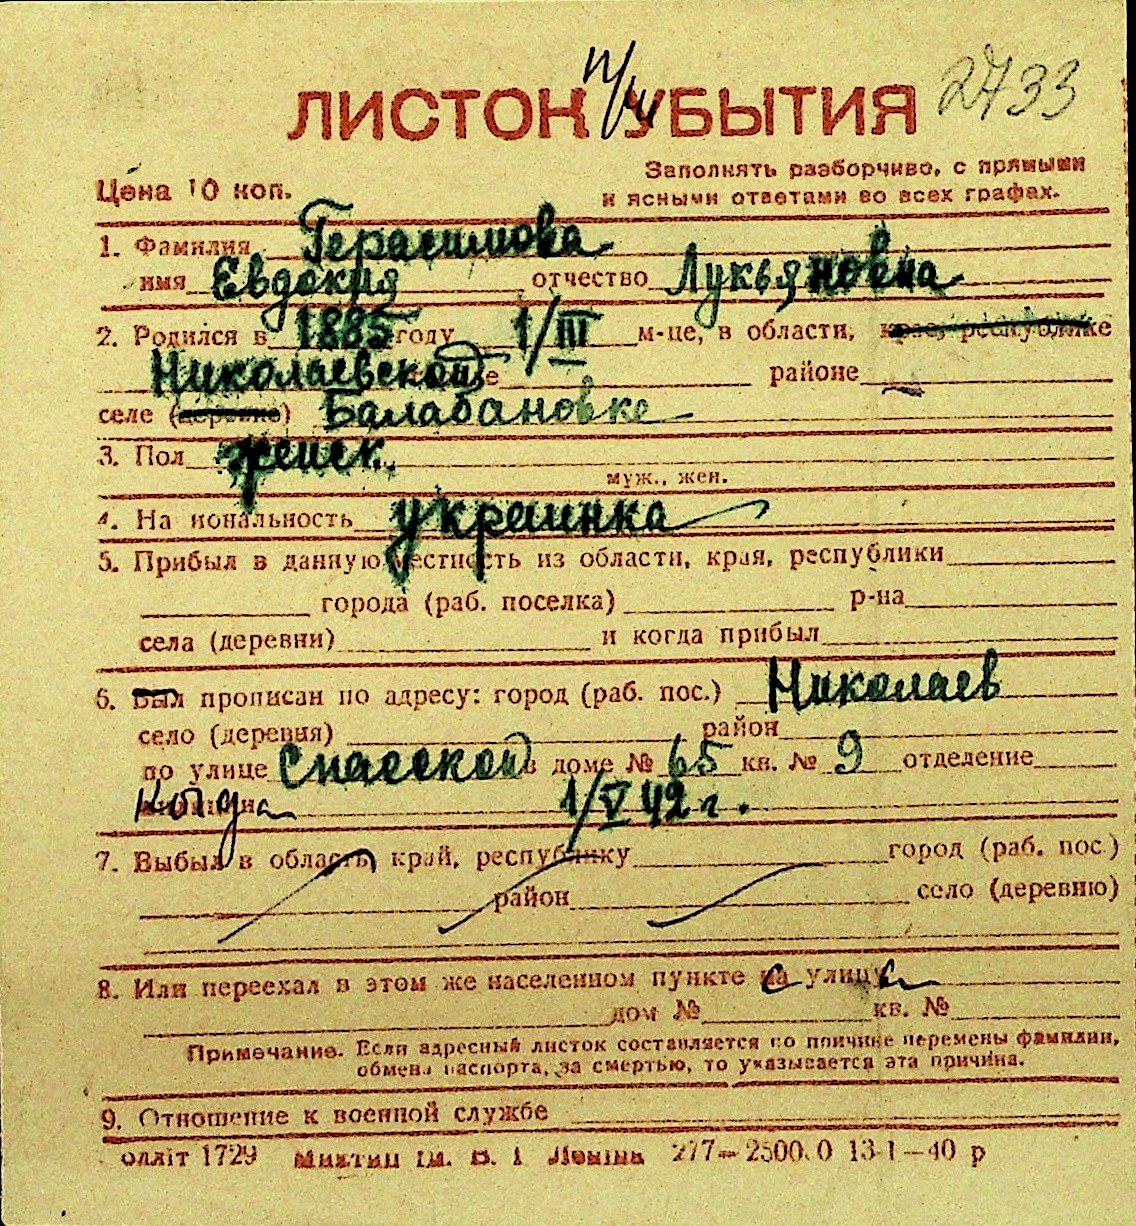 ЛИСТОК УБЫТИЯ 2733
Заполнять разборчиво, с прямыми
Цена 10 коп. и ясными ответами во всех графах.
1. Фамилия Герасимова
имя Евдокия отчество Лукьяновна
2. Родился в 1885 году 1/III м-це, в области, крае, республике
Николаевской районе
селе (деревне) Балабановке
3. Пол женск.
муж., жен.
4. На иональность украинка
5. Прибыл в данную местность из области, края, республики
города (раб. поселка) р-на
села (деревни) и когда прибыл
6. Был прописан по адресу: город (раб. пос.) Николаев
село (деревня) район
по улице Спасской в доме № 65 кв. № 9 отделение
Когда 1/V 42 г.
7. Выбыл в область, край, республику город (раб. пос.)
район село (деревню)
8. Или переехал в этом же населенном пункте с улицы
дом № кв. №
Примечание. Если адресный листок составляется по причине перемены фамилии,
обмена паспорта, за смертью, то указывается эта причина.
9. Отношение к военной службе
олліт 1729 ім. В. І Леніна 277—2500.0 13-1—40 р